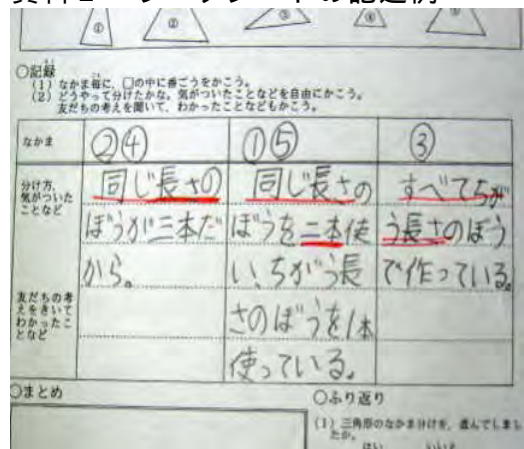 ① ② ③ ④ ⑤
○記録
(1) なかま毎に、□の中に番ごうをかこう。
(2) どうやって分けたかな。気がついたことなどを自由にかこう。
友だちの考えを聞いて、わかったことなどもかこう。
なかま
②④
①⑤
③
分け方、
気がついた
ことなど
同じ長さの
ぼうが三本だ
から。
同じ長さの
ぼうを二本使
い、ちがう長
さのぼうを1本
使っている。
すべてちが
う長さのぼう
で作っている。
友だちの考
えをきいて
わかったこ
となど
○まとめ
○ふり返り
(1) 三角形のなかま分けを、進んでしまし
たか。